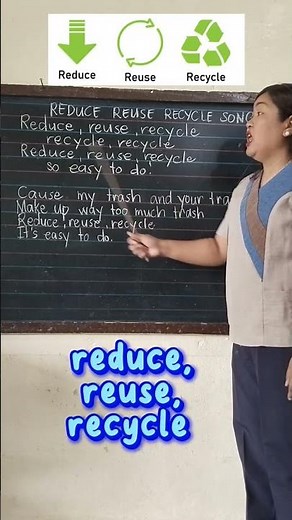 Reduce Reuse Recycle
REDUCE REUSE RECYCLE SONG
Reduce, reuse, recycle
recycle, recycle
Reduce, reuse, recycle
so easy to do.
Cause my trash and your
Make up way too much trash
Reduce, reuse, recycle
It's easy to do.
reduce,
reuse,
recycle